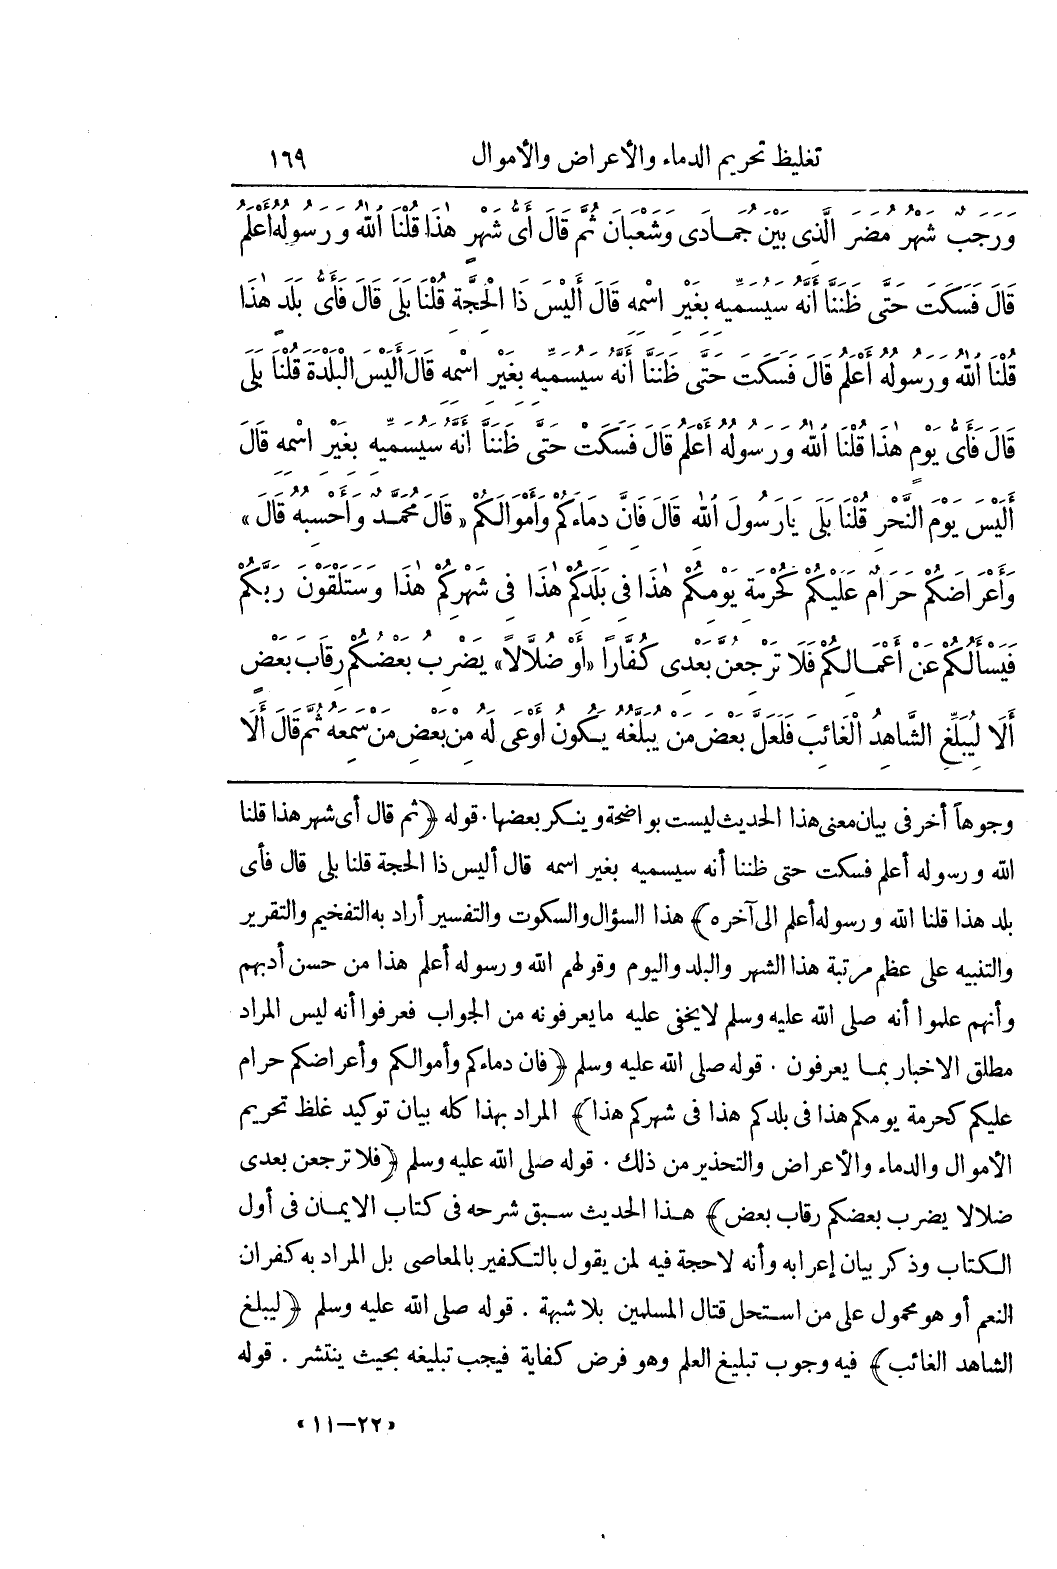 تغليظ تحريم الدماء والأعراض والأموال ١٦٩
وَرَجَبٌ شَهْرُ مُضَرَ الَّذِى بَيْنَ جُمَادَى وَشَعْبَانَ ثُمَّ قَالَ أَىُّ شَهْرٍ هٰذَا قُلْنَا اللهُ وَرَسُولُهُ أَعْلَمُ
قَالَ فَسَكَتَ حَتَّى ظَنَنَّا أَنَّهُ سَيُسَمِّيهِ بِغَيْرِ اسْمِهِ قَالَ أَلَيْسَ ذَا الْحِجَّةِ قُلْنَا بَلَى قَالَ فَأَىُّ بَلَدٍ هٰذَا
قُلْنَا اللهُ وَرَسُولُهُ أَعْلَمُ قَالَ فَسَكَتَ حَتَّى ظَنَنَّا أَنَّهُ سَيُسَمِّيهِ بِغَيْرِ اسْمِهِ قَالَ أَلَيْسَ الْبَلْدَةَ قُلْنَا بَلَى
قَالَ فَأَىُّ يَوْمٍ هٰذَا قُلْنَا اللهُ وَرَسُولُهُ أَعْلَمُ قَالَ فَسَكَتَ حَتَّى ظَنَنَّا أَنَّهُ سَيُسَمِّيهِ بِغَيْرِ اسْمِهِ قَالَ
أَلَيْسَ يَوْمَ النَّحْرِ قُلْنَا بَلَى يَارَسُولَ اللهِ قَالَ فَانَّ دِمَاءَكُمْ وَأَمْوَالَكُمْ «قَالَ مُحَمَّدٌ وَأَحْسِبُهُ قَالَ»
وَأَعْرَاضَكُمْ حَرَامٌ عَلَيْكُمْ كَحُرْمَةِ يَوْمِكُمْ هٰذَا فِى بَلَدِكُمْ هٰذَا فِى شَهْرِكُمْ هٰذَا وَسَتَلْقَوْنَ رَبَّكُمْ
فَيَسْأَلُكُمْ عَنْ أَعْمَالِكُمْ فَلَا تَرْجِعُنَّ بَعْدِى كُفَّارًا «أَوْ ضُلَّالًا» يَضْرِبُ بَعْضُكُمْ رِقَابَ بَعْضٍ
أَلَا لِيُبَلِّغِ الشَّاهِدُ الْغَائِبَ فَلَعَلَّ بَعْضَ مَنْ يُبَلَّغُهُ يَكُونُ أَوْعَى لَهُ مِنْ بَعْضِ مَنْ سَمِعَهُ ثُمَّ قَالَ أَلَا
وجوهاً أخر فى بيان معنى هذا الحديث ليست بواضحة وينكر بعضها. قوله ﴿ثم قال أى شهر هذا قلنا
الله ورسوله أعلم فسكت حتى ظننا أنه سيسميه بغير اسمه قال أليس ذا الحجة قلنا بلى قال فأى
بلد هذا قلنا الله ورسوله أعلم الى آخره﴾ هذا السؤال والسكوت والتفسير أراد به التفخيم والتقرير
والتنبيه على عظم مرتبة هذا الشهر والبلد واليوم وقولهم الله ورسوله أعلم هذا من حسن أدبهم
وأنهم علموا أنه صلى الله عليه وسلم لايخفى عليه مايعرفونه من الجواب فعرفوا أنه ليس المراد
مطلق الاخبار بما يعرفون . قوله صلى الله عليه وسلم ﴿فان دماءكم وأموالكم وأعراضكم حرام
عليكم كحرمة يومكم هذا فى بلدكم هذا فى شهركم هذا﴾ المراد بهذا كله بيان توكيد غلظ تحريم
الأموال والدماء والأعراض والتحذير من ذلك . قوله صلى الله عليه وسلم ﴿فلا ترجعن بعدى
ضلالا يضرب بعضكم رقاب بعض﴾ هذا الحديث سبق شرحه فى كتاب الايمان فى أول
الكتاب وذكر بيان إعرابه وأنه لاحجة فيه لمن يقول بالتكفير بالمعاصى بل المراد به كفران
النعم أو هو محمول على من استحل قتال المسلمين بلا شبهة . قوله صلى الله عليه وسلم ﴿ليبلغ
الشاهد الغائب﴾ فيه وجوب تبليغ العلم وهو فرض كفاية فيجب تبليغه بحيث ينتشر . قوله
«٢٢–١١»